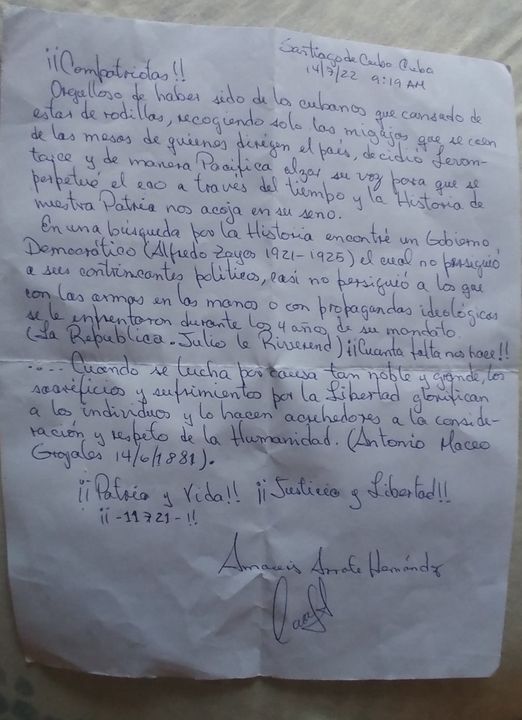 Santiago de Cuba Cuba
14/7/22 9:19 AM
¡¡Compatriotas!!
Orgulloso de haber sido de los cubanos que cansado de
estar de rodillas, recogiendo solo las migajas que se caen
de las mesas de quienes dirigen el país, decidió levan-
tarse y de manera Pacifica alzar su voz para que se
perpetué el eco a través del tiempo y la Historia de
nuestra Patria nos acoja en su seno.
En una búsqueda por la Historia encontré un Gobierno
Democrático (Alfredo Zayas 1921-1925) el cual no persiguió
a sus contrincantes políticos, casi no persiguió a los que
con las armas en las manos o con propagandas ideológicas
se le enfrentaron durante los 4 años de su mandato.
(La República - Julio le Riverend) ¡¡Cuanta falta nos hace!!
.... Cuando se lucha por causa tan noble y grande, los
sacrificios y sufrimiento por la Libertad glorifican
a los individuos y lo hacen acrehedores a la conside-
ración y respeto de la Humanidad. (Antonio Maceo
Grajales 14/6/1881).
¡¡Patria y Vida!! ¡¡Justicia y Libertad!!
¡¡-11721-!!
Arrate Hernández